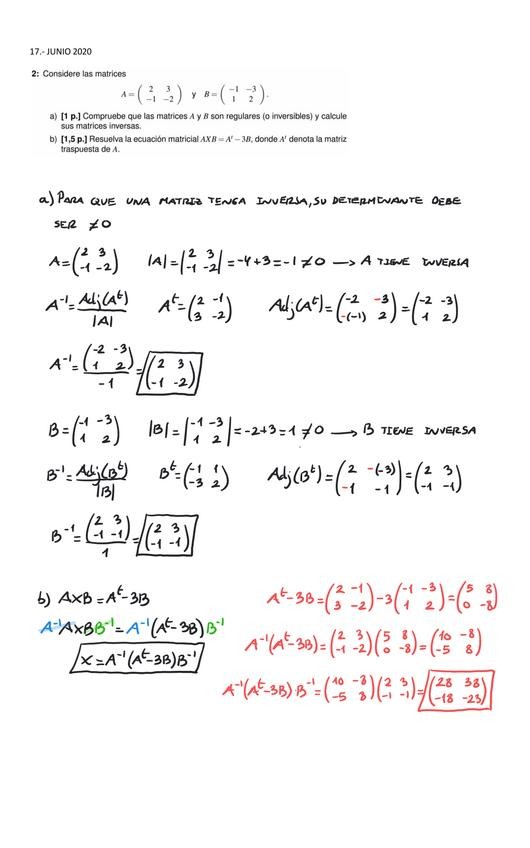 17.- JUNIO 2020
2: Considere las matrices
A = ( 2 3 ; -1 -2 ) y B = ( -1 -3 ; 1 2 ).
a) [1 p.] Compruebe que las matrices A y B son regulares (o inversibles) y calcule
sus matrices inversas.
b) [1,5 p.] Resuelva la ecuación matricial AXB = Aᵗ − 3B, donde Aᵗ denota la matriz
traspuesta de A.
a) PARA QUE UNA MATRIZ TENGA INVERSA, SU DETERMINANTE DEBE
SER ≠0
A = (2 3 ; -1 -2) |A| = |2 3 ; -1 -2| = -4+3 = -1 ≠0 → A TIENE INVERSA
A⁻¹ = Adj(Aᵗ)/|A| Aᵗ = (2 -1 ; 3 -2) Adj(Aᵗ) = (-2 -3 ; -(-1) 2) = (-2 -3 ; 1 2)
A⁻¹ = (-2 -3 ; 1 2)/-1 = (2 3 ; -1 -2)
B = (-1 -3 ; 1 2) |B| = |-1 -3 ; 1 2| = -2+3 = 1 ≠0 → B TIENE INVERSA
B⁻¹ = Adj(Bᵗ)/|B| Bᵗ = (-1 1 ; -3 2) Adj(Bᵗ) = (2 -(-3) ; -1 -1) = (2 3 ; -1 -1)
B⁻¹ = (2 3 ; -1 -1)/1 = (2 3 ; -1 -1)
b) AXB = Aᵗ-3B
A⁻¹AXBB⁻¹ = A⁻¹(Aᵗ-3B)B⁻¹
X = A⁻¹(Aᵗ-3B)B⁻¹
Aᵗ-3B = (2 -1 ; 3 -2) -3(-1 -3 ; 1 2) = (5 8 ; 0 -8)
A⁻¹(Aᵗ-3B) = (2 3 ; -1 -2)(5 8 ; 0 -8) = (10 -8 ; -5 8)
A⁻¹(Aᵗ-3B)·B⁻¹ = (10 -8 ; -5 8)(2 3 ; -1 -1) = (28 38 ; -18 -23)